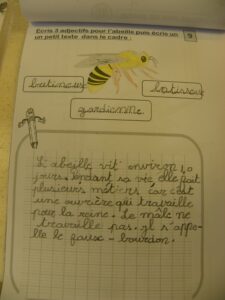 Ecris 3 adjectifs pour l'abeille puis écris un
un petit texte dans le cadre :
9
butineuse
batisseuse
gardienne
L'abeille vit environ 40
jours. Pendant sa vie elle fait
plusieurs métiers car c'est
une ouvrière qui travaille
pour la reine. Le mâle ne
travaille pas. Il s'appe-
lle le faux-bourdon.